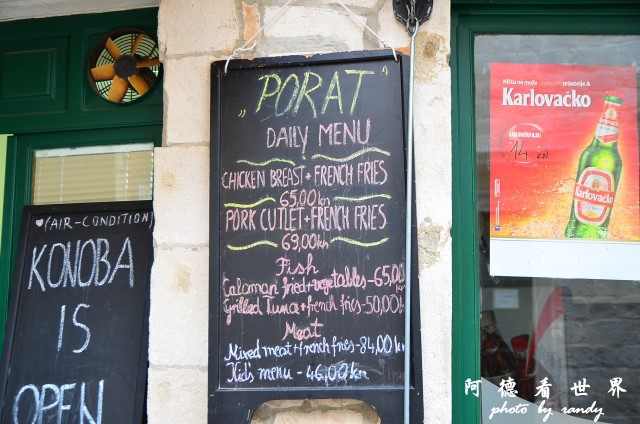 ♥(AIR-CONDITION)
KONOBA
IS
OPEN
„PORAT"
DAILY MENU
CHICKEN BREAST+FRENCH FRIES
65,00kn
PORK CUTLET+FRENCH FRIES
69,00kn
Fish
Calamari fried+vegetables-65,00
Grilled Tuna+french fries-50,00k
Meat
Mixed meat+french fries-84,00 kn
Kid's menu - 46,00 kn
Ništa ne može prijatelje &
Karlovačko
14 kn
Karlovačko
阿德看世界
photo by randy